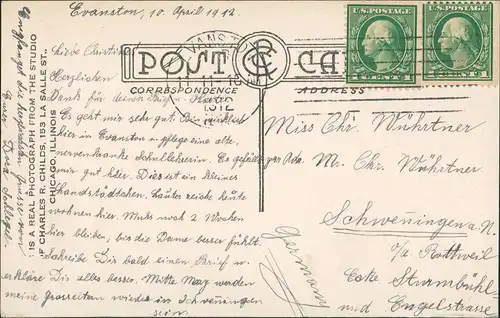 Evanston, 10. April 1912.
Liebe Christine
Herzlichen
Dank für deinen Brief u. Karte
Es geht mir sehr gut. Bin wirklich
hier in Evanston u. pflege eine alte,
nervenkranke Schullehrerin. Es gefällt
mir gut hier. Dies ist ein kleines
Landstädtchen. Lauter reiche heute
wohnen hier. Muks noch 2 Wochen
hier bleiben, bis die Dame besser fühlt.
Schreibe Dir bald einen Brief u.
erkläre Dir alles besser. Mitte May werden
meine Grosseltern wieder in Schweningen
sein.
Empfangt die herzlichsten Grüsse von
Eurer Dora Schlegel
THIS IS A REAL PHOTOGRAPH FROM THE STUDIO
OF CHARLES R. CHILDS, 1953 LA SALLE ST.,
CHICAGO, ILLINOIS
POST CARD
CORRESPONDENCE
ADDRESS
EVANSTON
1912
U.S. POSTAGE
1 CENT 1
U.S. POSTAGE
CENT 1
Miss Chr. Wührtner
per Adr. Mr. Chr. Wührtner
Schwenningen a. N.
o/a Rottweil
Ecke Sturmbühl-
und Engelstrasse
Germany